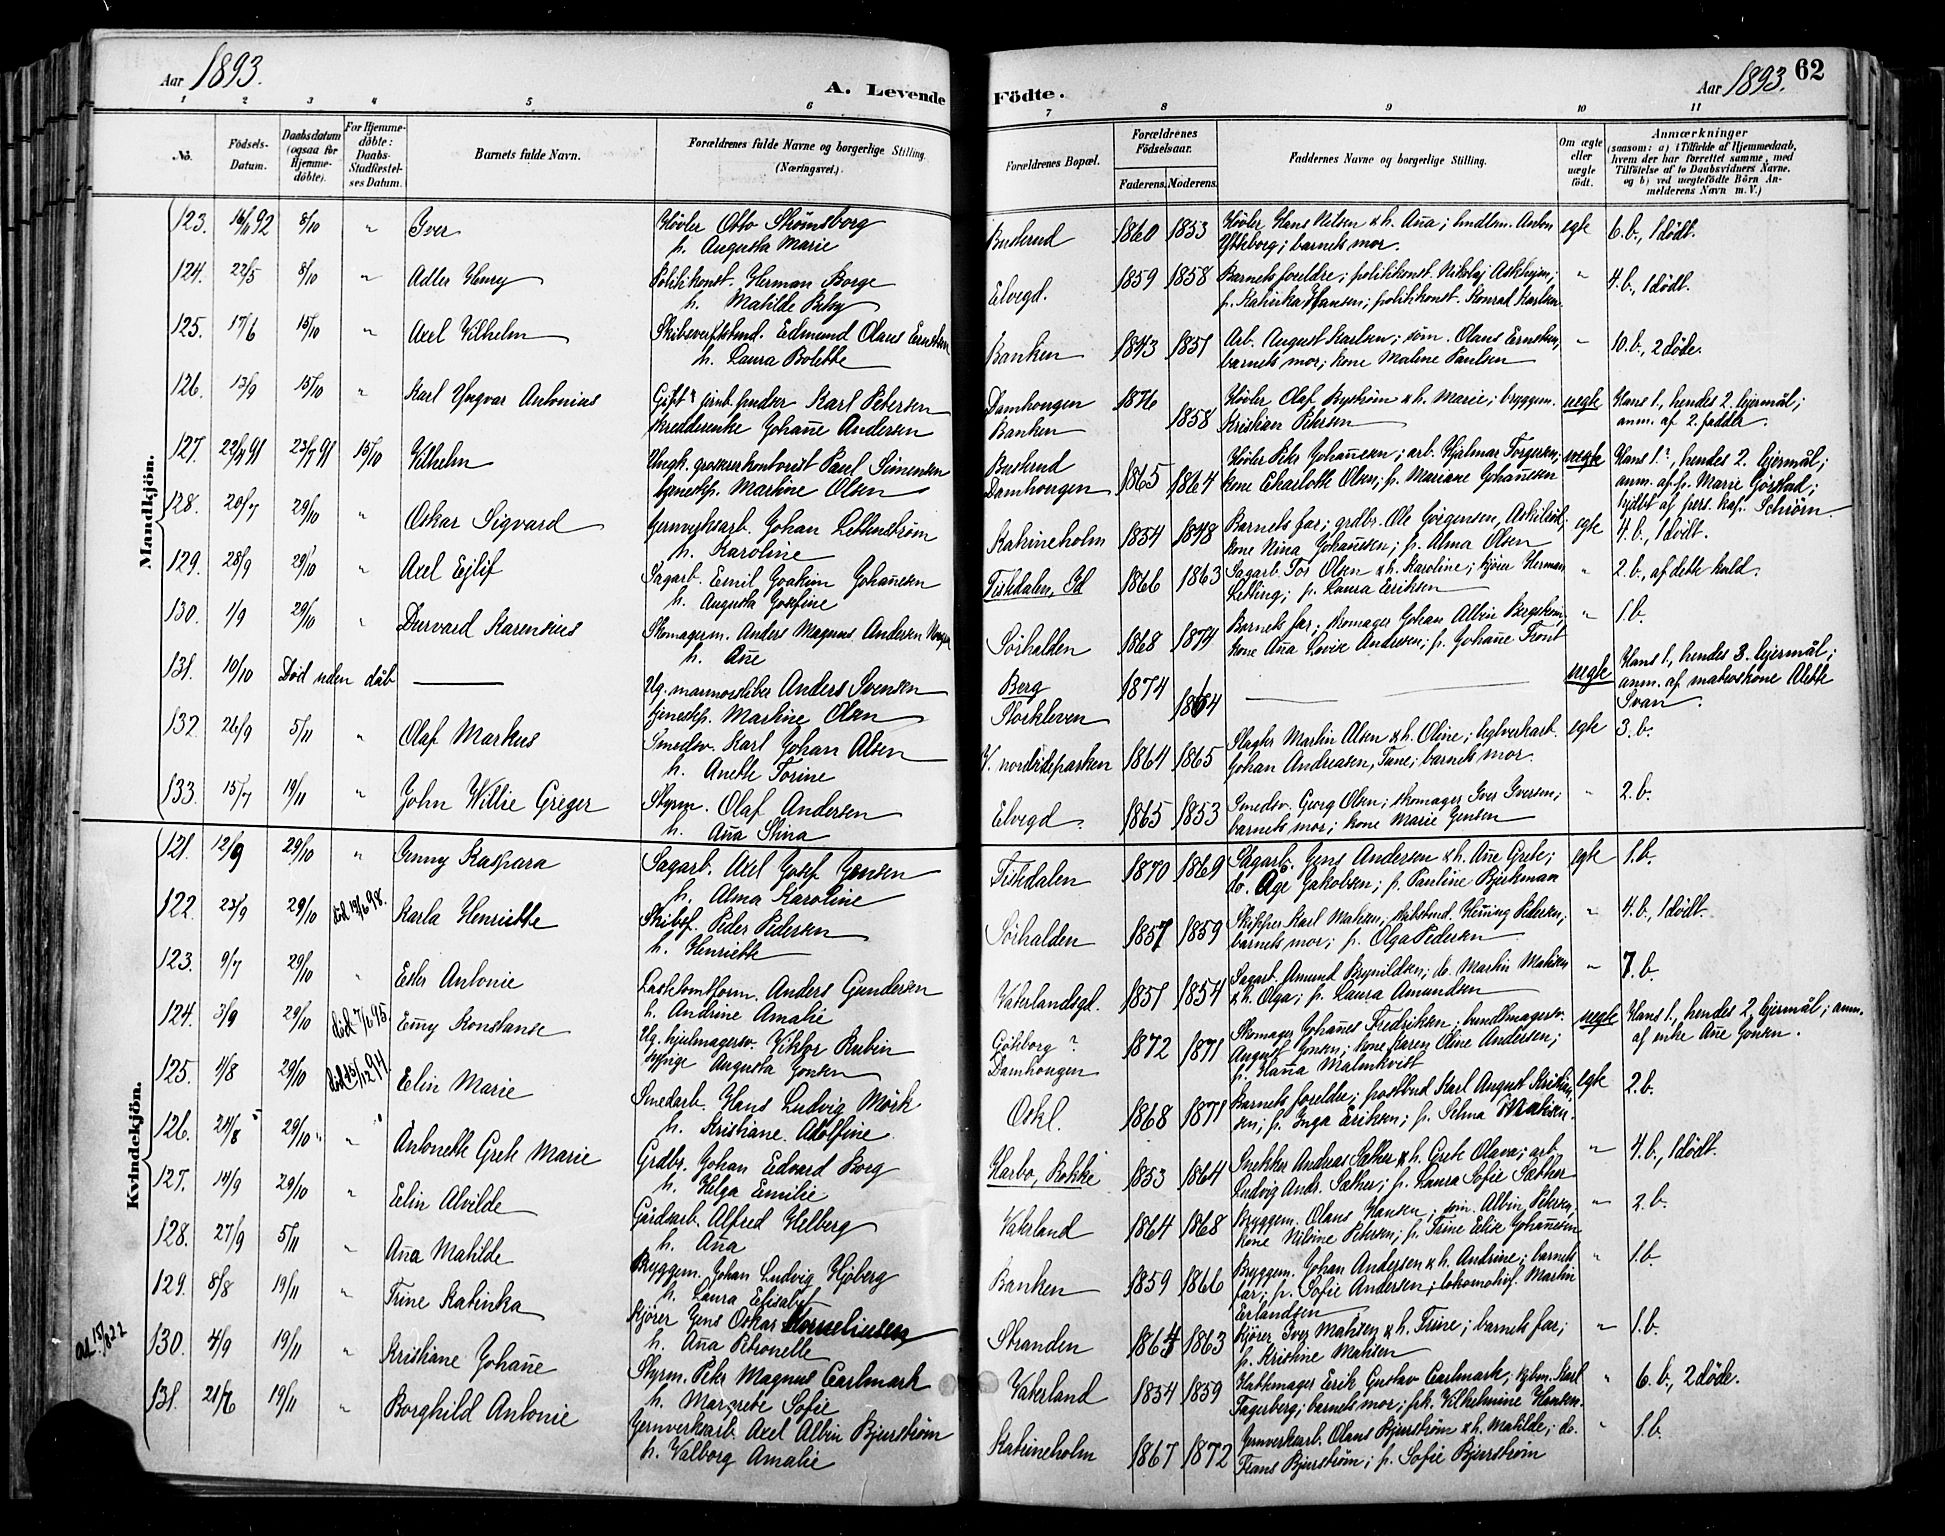 Aar 1893.
A. Levende
Födte.
Aar 1893.
62
1 2 3 4 5 6 7 8 9 10 11
No.
Födsels-Datum.
Daabsdatum (ogsaa for Hjemme-döbte).
For Hjemme-döbte: Daabs-Stadfæstel-ses Datum.
Barnets fulde Navn.
Forældrenes fulde Navne og borgerlige Stilling. (Næringsvei.)
Forældrenes Bopæl.
Forældrenes Födselsaar.
Faderens. Moderens.
Faddernes Navne og borgerlige Stilling.
Om ægte eller uægte födt.
Anmærkninger
(saasom: a) i Tilfælde af Hjemmedaab,
hvem der har forrettet samme, med
Tilföielse af to Daabsvidners Navne,
og b) ved uægtefödte Börn An-
melderens Navn m. V.)
Mandkjön.
123. 16/11 92 8/10 " Iver
Hövler Otto Strömsborg
h. Augusta Marie
Buskrud 1860 1853
Hövler Hans Nilsen & h. Aña; hndlm. Anton
Ytteborg; barnets mor.
egte 6. b., 1 dödt.
124. 22/5 8/10 " Adler Henry
Politikonst. Herman Borge
h. Matilde Betsy
Elvegd. 1859 1858
Barnets foreldre; politikonst. Nikolaj Askhejm;
p. Katinka Hansen; politikonst. Konrad Karlsen
" 4. b., 1 dödt.
125. 17/6 15/10 " Axel Vilhelm
Skibsverftstmd. Edmund Olaus Ernstsen
h. Laura Bolette
Banken 1843 1851
Arb. August Karlsen; söm. Olaus Ernstsen,
barnets mor; kone Maline Paulsen
" 10. b., 2 döde.
126. 13/9 15/10 " Karl Yngvar Antonius
Gift jrnb. pudser Karl Petersen
skredderenke Johañe Andersen
Damhougen 1876
Banken 1858
Hövler Olaf Byström & h. Marie; bryggem.
Kristian Petersen
uegte Hans 1., hendes 2. lejermål;
anm. af 2. fadder.
127. 22/4 91 23/7 91 15/10 Vilhelm
Ungk. grosserkontorist Paul Simensen
tjenestep. Martine Olsen
Buskrud
Damhougen 1865 1864
Hövler Peter Johañesen; arb. Hjalmar Torgersen;
kone Charlotte Olsen; p. Mariane Johañesen
uegte Hans 1.?, hendes 2. lejermål;
anm. af p. Marie Görstad;
hjdbt af pers. kap. Schiörn.
128. 20/7 29/10 " Oskar Sigvard
Jernverksarb. Johan Lettenström
h. Karoline
Katrineholm 1854 1848
Barnets far; grdbr. Ole Jörgensen, Askilsrud;
kone Nina Johañesen; p. Alma Olsen
egte 4. b., 1 dödt.
129. 28/9 29/10 " Axel Ejlif
Sagarb. Emil Joakim Johañesen
h. Augusta Josefine
Tistedalen, Id 1866 1863
Sagarb. Tor Olsen & h. Karoline; kjörer Herman
Letting; p. Laura Eriksen
" 2. b., af dette kuld.
130. 1/9 29/10 " Durvard Karenius
Skomagerm. Anders Magnus Andersen
h. Añe
Sörhalden 1868 1874
Barnets far; skomager Johan Albin Bergström;
kone Aña Lovise Andersen; p. Johañe Front
" 1. b.
131. 10/10 Död uden dåb ———
Ug. marmorsliber Anders Svensen
tjenestep. Martine Olsen
Berg 1874
Stockleven 1864
———
uegte Hans 1., hendes 3. lejermål;
anm. af matroskone Alette
Svan.
132. 26/9 5/11 " Olaf Markus
Smedsv. Karl Johan Alsen
h. Anette Torine
V. nordsideparken 1864 1865
Slagter Martin Alsen & h. Oline; teglverkarb.
Johan Andreasen, Tune; barnets mor.
egte 3. b.
133. 15/7 19/11 " John Willie Greger
Styrm. Olaf Andersen
h. Aña Stina
Elvegd. 1865 1853
Smedsv. Georg Olsen; skomager Iver Iversen;
barnets mor; kone Marie Jensen
" 2. b.
Kvindekjön.
121. 12/9 29/10 " Jenny Kaspara
Sagarb. Axel Josef Jonsen
h. Alma Karoline
Tistedalen 1870 1869
Sagarb. Jens Andersen & h. Añe Grete;
do. Age Jakobsen; p. Pauline Bjerkman
egte 1. b.
122. 23/9 29/10 död 19/6 98. Karla Henriette
Skibsf. Peder Pedersen
h. Henriette
Sörhalden 1857 1859
Skipper Karl Matisen; skibstmd. Heñing Pedersen;
barnets mor; p. Olga Pedersen
" 4. b., 1 dödt.
123. 9/7 29/10 " Ester Antonie
Lastetomtform. Anders Gundersen
h. Andrine Amalie
Vaterlandsgd. 1851 1854
Sagarb. Amund Brynildsen; do. Martin Matisen
& h. Olga; p. Laura Amundsen
" 7. b.
124. 3/9 29/10 död 7/6 95. Emy Konstanse
Ug. hjulmagersv. Viktor Rubin
sypige Augusta Jonsen
Göteborg ? 1872 1871
Damhougen
Skomager Johañes Fredriksen; bundtmagersv.
August Jonsen; kone Karen Oline Andersen;
p. Haña Malmkvist
uegte Hans 1., hendes 2. lejermål; anm.
af enke Añe Jonsen.
125. 4/8 29/10 död 15/12 94 Elin Marie
Smedarb. Hans Ludvig Mörk
h. Kristiane Adolfine
Oskl. 1868 1871
Barnets foreldre; postbud Karl August Kristian-
sen; p. Inga Eriksen; p. Selma Matisen.
egte 2. b.
126. 24/8 29/10 " Antonette Grete Marie
Grdbr. Johan Edvard Borg
h. Helga Emilie
Harbo, Rokke 1853 1864
Snekker Andreas Sæther & h. Grete Olava; arb.
Ludvig Andr. Sæther; p. Laura Sofie Sæther
" 4. b., 1 dödt.
127. 14/9 29/10 " Elin Alvilde
Gårdsarb. Alfred Helberg
h. Aña
Vaterland 1864 1868
Bryggem. Olaus Hansen; söm. Albin Petersen,
kone Niline Petersen; p. Trine Elise Johañesen
" 2. b.
128. 27/9 5/11 " Aña Matilde
Bryggem. Johan Ludvig Hjöberg
h. Laura Elisabet
Banken 1859 1866
Bryggem. Johan Andersen & h. Andrine; barnets
far; p. Sofie Andersen; lokomotivf. Martin
Erlandsen
" 1. b.
129. 8/8 19/11 " Trine Katinka
Kjörer Jens Oskar Korneliusen
h. Aña Petronelle
Stranden 1864 1863
Kjörer Iver Matisen & h. Trine; barnets far;
p. Kristine Matisen
" 1. b.
130. 4/9 19/11 " Kristiane Johañe
Styrm. Peter Magnus Carlmark
h. Margrete Sofie
Vaterland 1854 1859
Hattemager Erik Gustav Carlmark; kjbm. Karl
Fagerberg; barnets mor; frk. Vilhelmine Hansen.
" 6. b., 2 döde.
131. 21/6 19/11 " Borghild Antonie
Jernverksarb. Axel Albin Bjurström
h. Valborg Amalie
Katrineholm 1867 1872
Jernverksarb. Olaus Bjurström & h. Matilde; do.
Frans Bjurström; p. Sofie Bjurström
" 1. b.